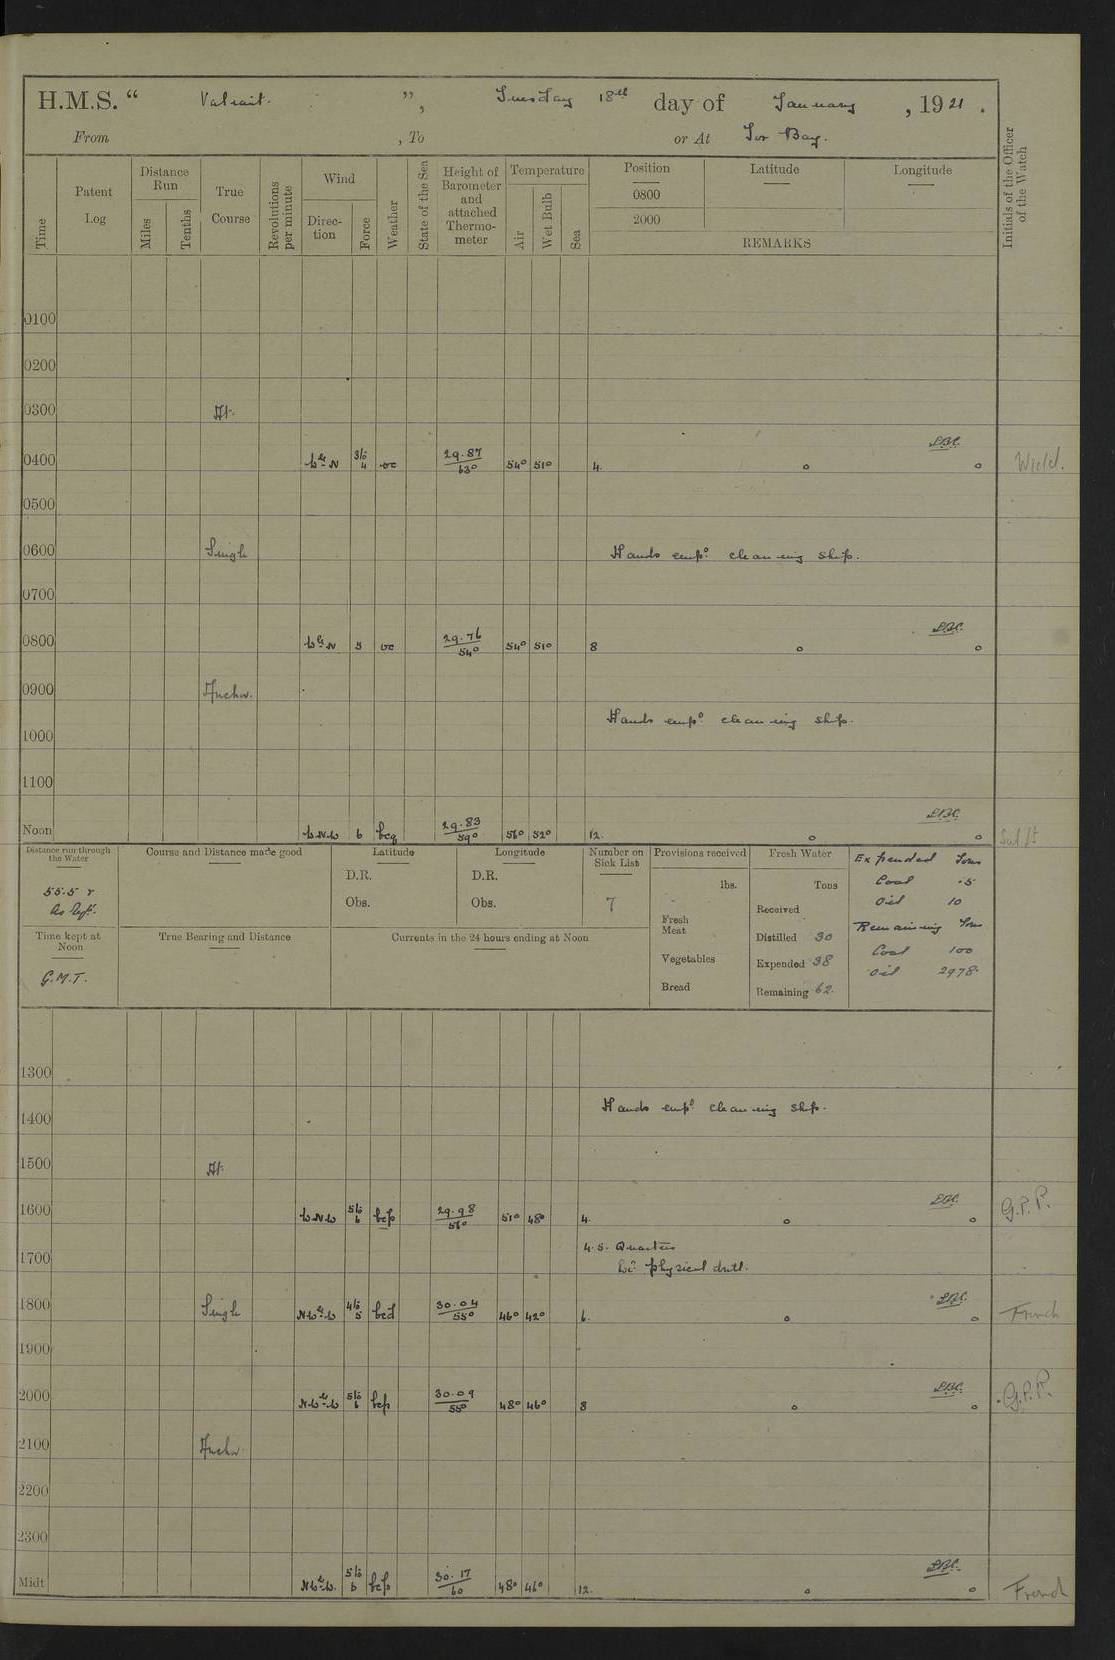 H.M.S. “ Valiant. ”, Tuesday 18th day of January, 1921.
From , To or At Tor Bay.
Time
Patent Log
Distance Run
Miles
Tenths
True Course
Revolutions per minute
Wind
Direction
Force
Weather
State of the Sea
Height of Barometer and attached Thermometer
Temperature
Air
Wet Bulb
Sea
Position
0800
2000
Latitude
Longitude
REMARKS
Initials of the Officer of the Watch
0100
0200
0300 At
0400 3 to 4 oc 29.87 63° 54° 51° 4.
0500
0600 Single Hands empd. cleaning ship.
0700
0800 5 oc 29.76 54° 54° 51° 8
0900 Anchor.
Hands empd. cleaning ship.
1000
1100
Noon WNW 6 bcq 29.83 59° 56° 52° 12.
Distance run through the Water
Course and Distance made good
Latitude
Longitude
Number on Sick List
Provisions received
Fresh Water
Expended Tons
D.R.
D.R.
lbs.
Tons
Coal .5
55.5 r
Obs.
Obs.
7
Received
Oil 10
Fresh Meat
Remaining Tons
Time kept at Noon
True Bearing and Distance
Currents in the 24 hours ending at Noon
Distilled 30
Coal 100
G.M.T.
Vegetables
Expended 38
Oil 2978
Bread
Remaining 62.
1300
Hands empd. cleaning ship.
1400
1500 At
1600 WNW 5 to 6 bcp 29.98 56° 51° 48° 4. G.P.P.
4.5. Quarters
1700 physical drill.
1800 Single 4 to 5 30.04 55° 46° 42° 6. French
1900
2000 5 to 6 bcp 30.09 55° 48° 46° 8 G.P.P.
2100 Anchor
2200
2300
Midt 5 to 6 bcp 30.17 60 48° 46° 12. French